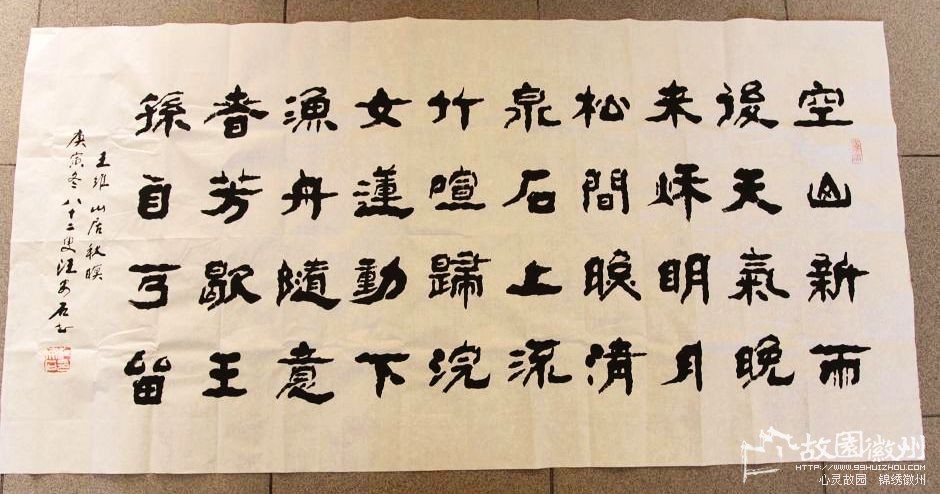 空山新雨
後天氣晚
来秋明月
松間照清
泉石上流
竹喧歸浣
女蓮動下
漁舟隨意
春芳歇王
孫自可留
王维山居秋暝
庚寅冬八十二叟汪石书
故園徽州
HTTP://WWW.99HUIZHOU.COM
心灵故园 锦绣徽州